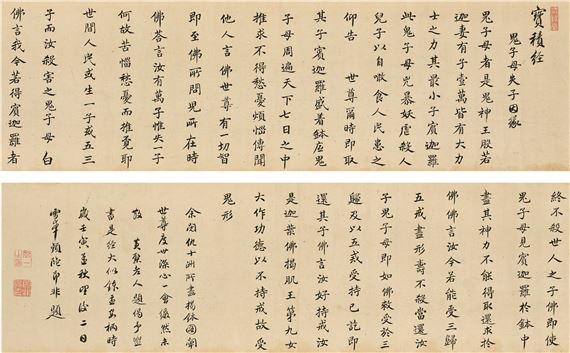 寶積經
鬼子母失子因緣
鬼子母者是鬼神王般若
迦妻有子壹萬皆有大力
士之力其最小子賓迦羅
此鬼子母兇暴妖虐殺人
兒子以自噉食人民患之
仰告 世尊爾時即取
其子賓迦羅盛著鉢底鬼
子母周遍天下七日之中
推求不得愁憂煩惱傳聞
他人言佛世尊有一切智
即至佛所問兒所在時
佛答言汝有萬子惟失一子
何故苦惱愁憂而推覓耶
世間人民或生一子或五三
子而汝殺害之鬼子母白
佛言我今若得賓迦羅者
終不殺世人之子佛即使
鬼子母見賓迦羅於鉢中
盡其神力不能得取還求於
佛佛言汝今若能受三歸
五戒盡形壽不殺當還汝
子鬼子母即如佛敕受於三
歸及以五戒受持已訖即
還其子佛言汝好持戒汝
是迦葉佛羯肌王第九女
大作功德以不持戒故受
鬼形
余閱仇十洲所畫揭鉢圖
世尊度世深心一會儼然未
散 題偈予
書是經大似 柄時
歲壬寅孟秋 後二日
雪峯頭陀 非題